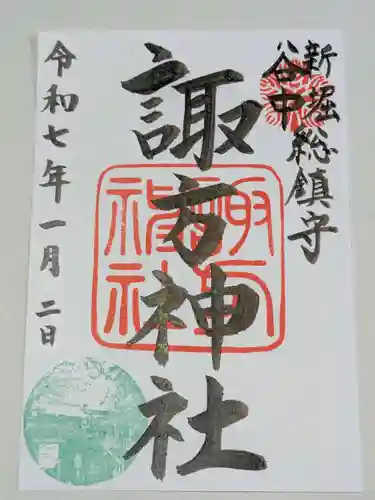 新堀
谷中
総鎮守
諏方神社
令和七年一月二日
諏方神社